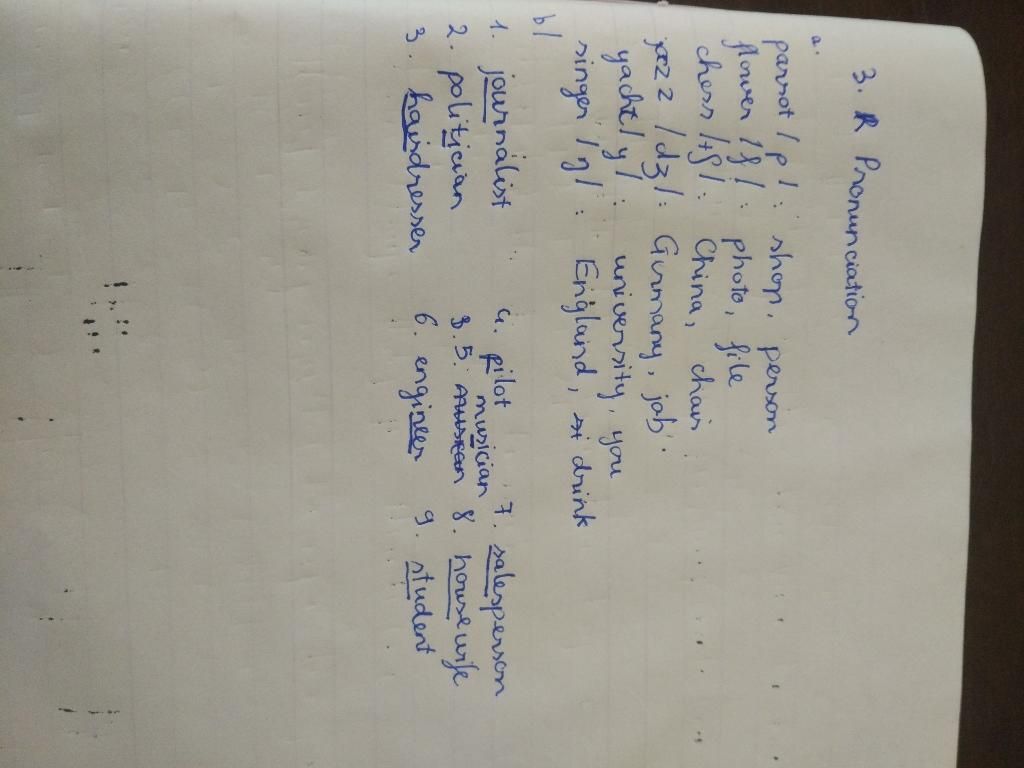 3. Pronunciation
a.
parrot /p/: shop, person
flower /f/: photo, file
chess /tʃ/: China, chair
jazz /dʒ/: Gurmany, job.
yacht /y/: university, you
singer /ŋ/: England, drink
b/
1. journalist 4. pilot 7. salesperson
2. politician 5. musician 8. housewife
3. hairdresser 6. engineer 9. student